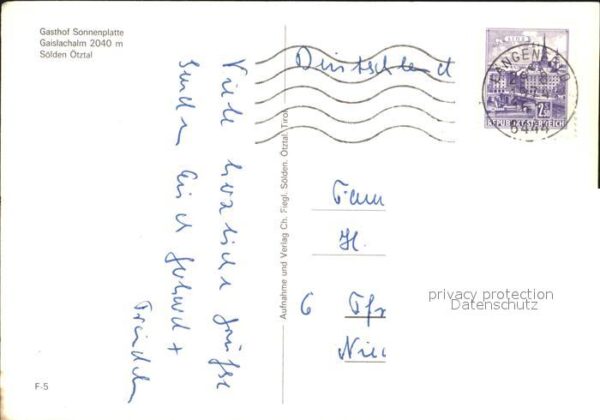 Gasthof Sonnenplatte
Gaislachalm 2040 m
Sölden Ötztal
Viele herzliche Grüße
senden Euch Gerhard +
Deutschland
LINZ
LÄNGENFELD
6444
REPUBLIK ÖSTERREICH
Aufnahme und Verlag Ch. Fiegl. Sölden. Ötztal. Tirol
Fam
H.
6 Ffr
Nie
privacy protection
Datenschutz
F-5